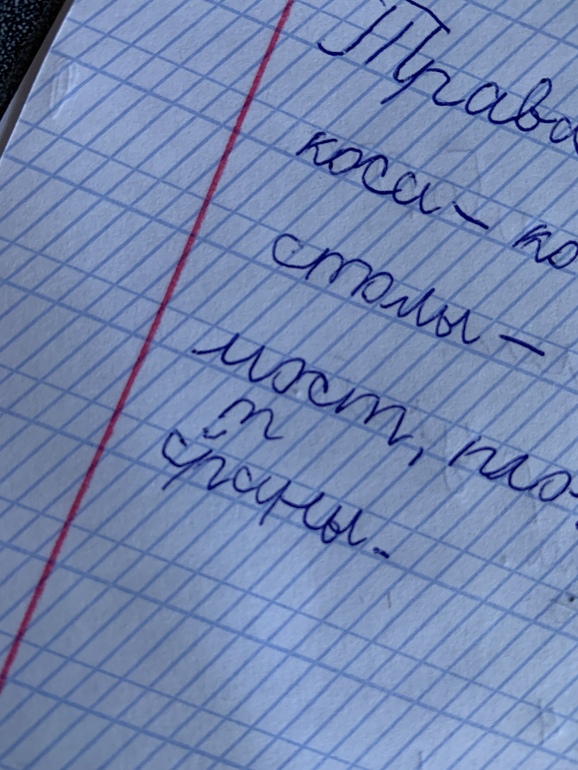 Трава
коса – ко
столы –
мост, пло-
страны.